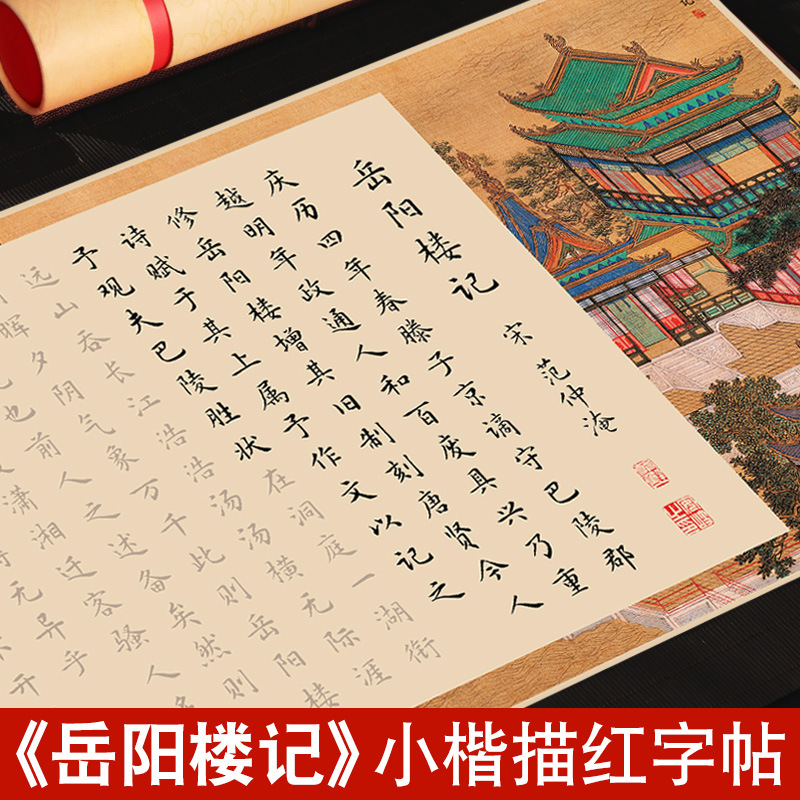 岳阳楼记
宋 范仲淹
庆历四年春滕子京谪守巴陵郡
越明年政通人和百度具兴乃重
修岳阳楼增其旧制刻唐贤今人
诗赋于其上属予作文以记之
予观夫巴陵胜状在洞庭一湖衔
远山吞长江浩浩汤汤横无际涯
晖夕阴气象万千此则岳阳楼
也前人之述备矣然则
潇湘迁客骚人
无异乎
开
《岳阳楼记》小楷描红字帖